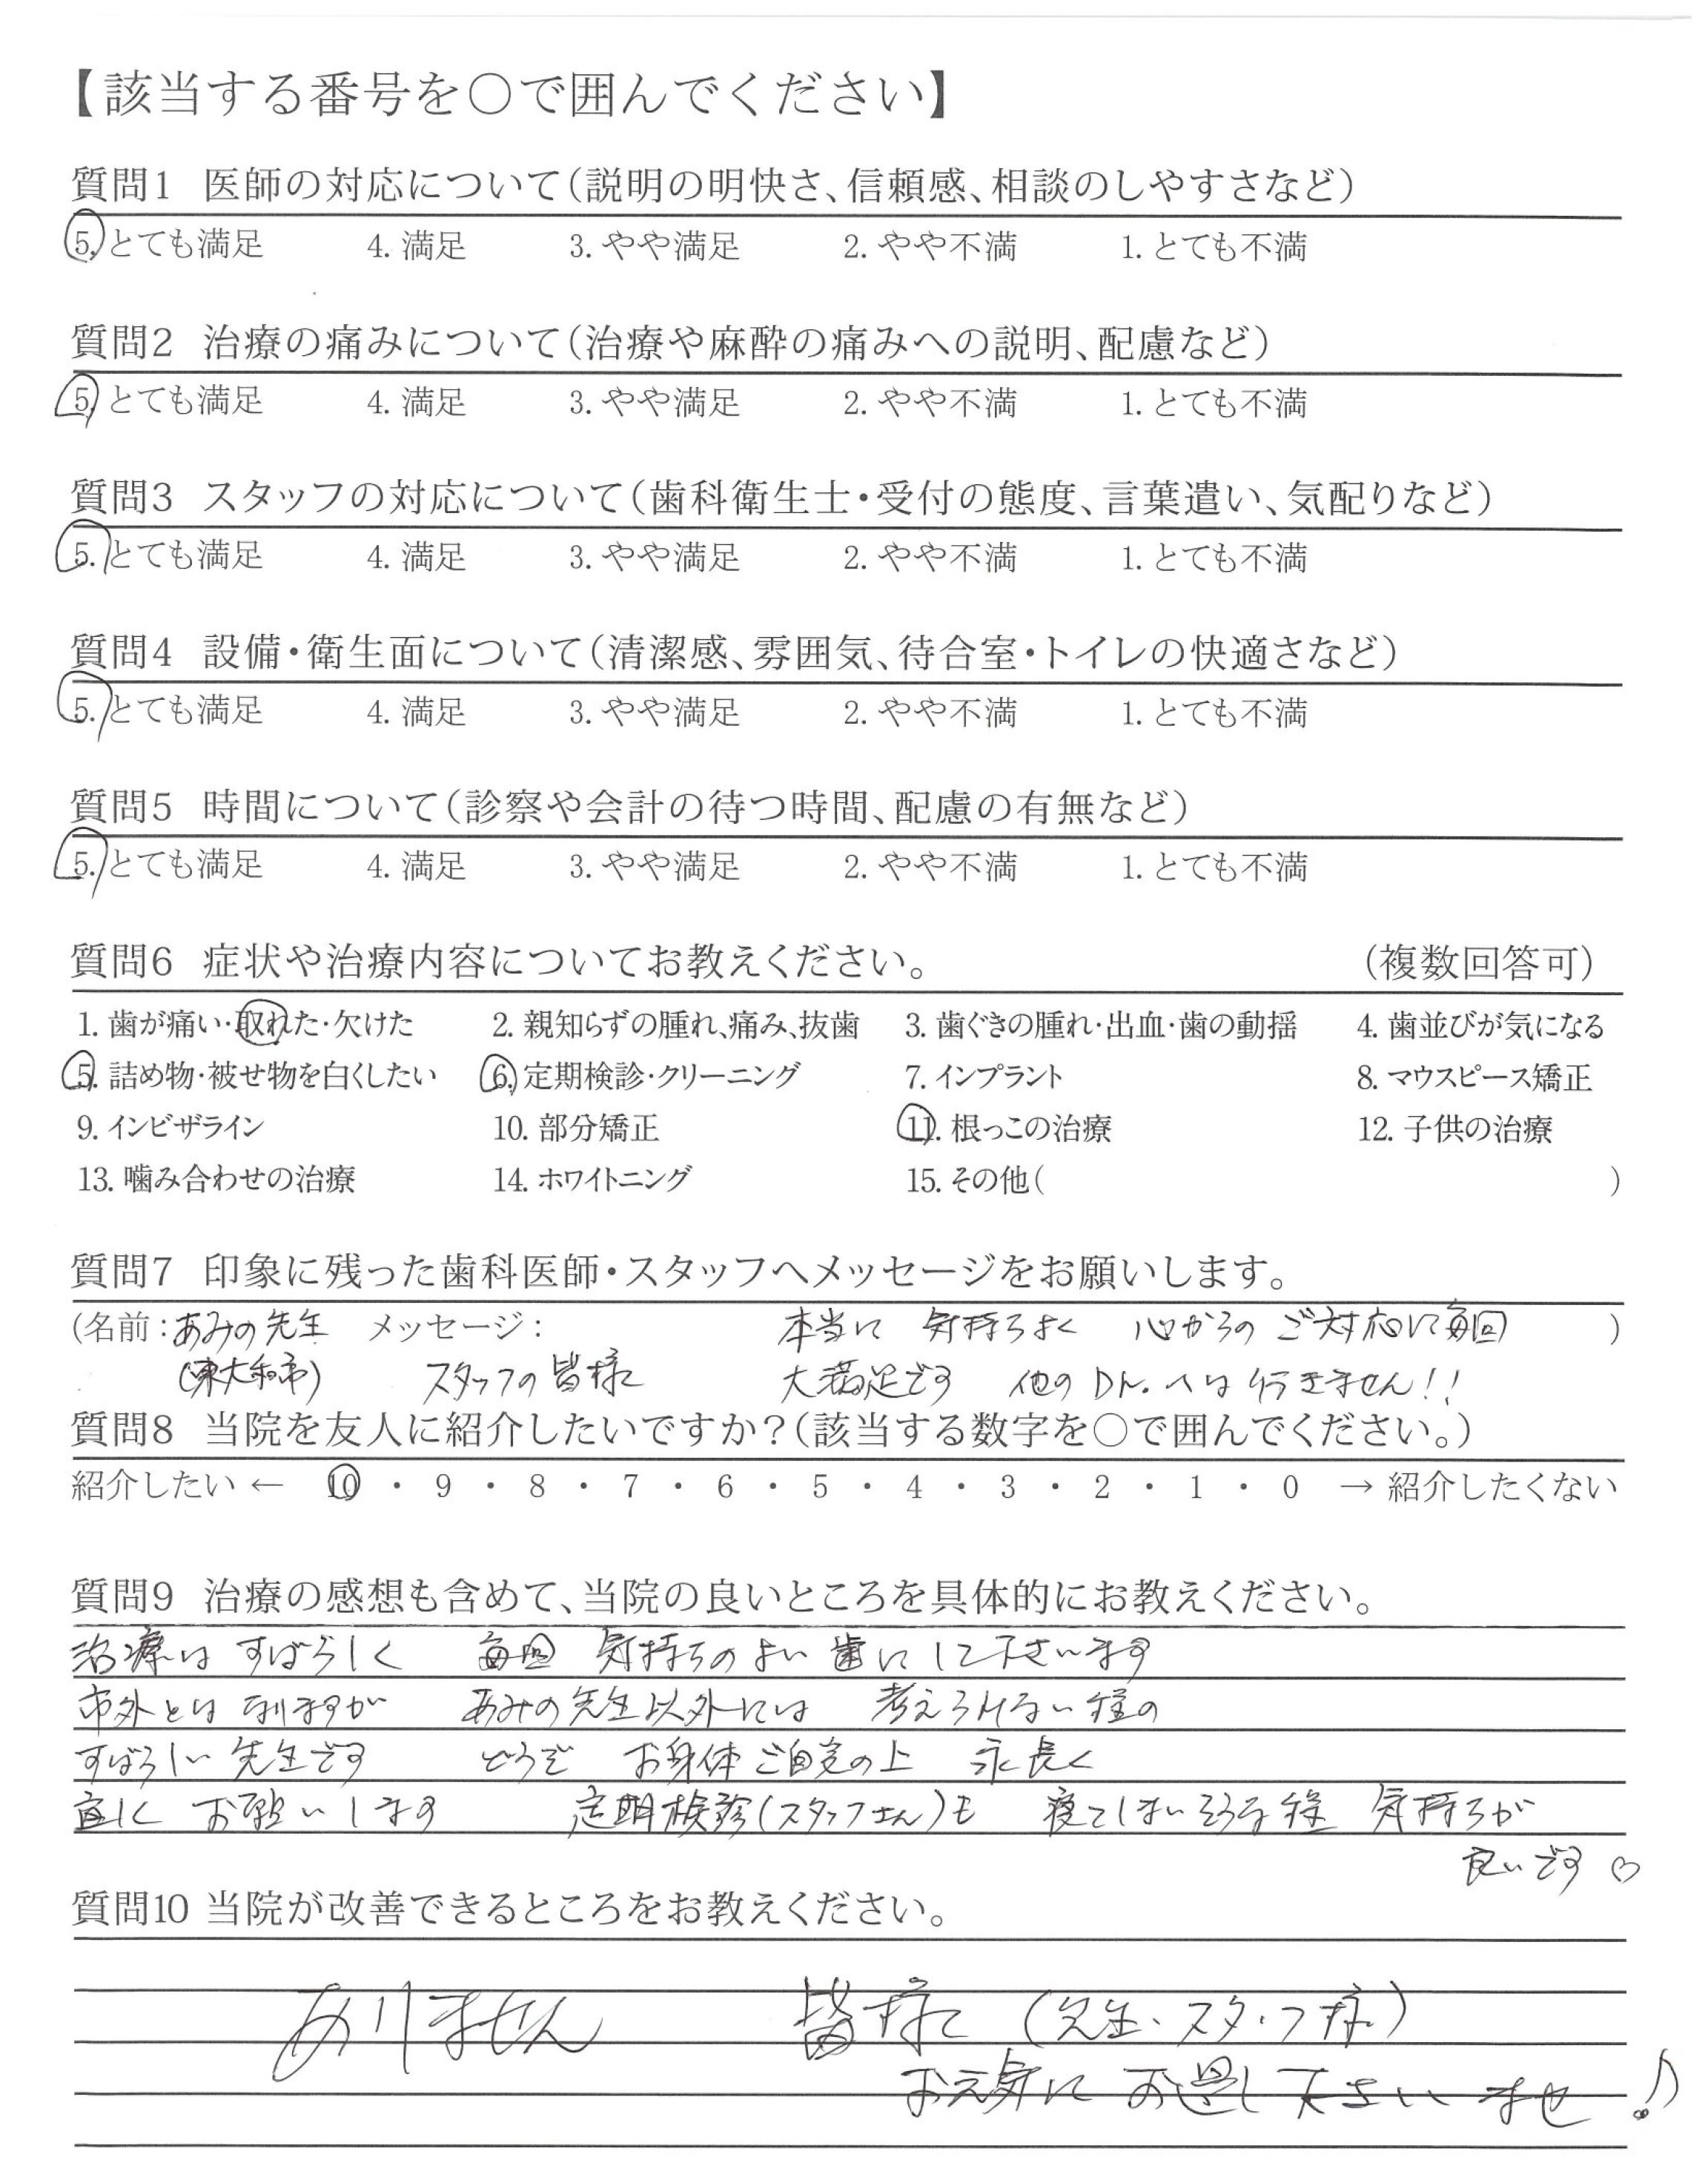 【該当する番号を○で囲んでください】
質問1 医師の対応について(説明の明快さ、信頼感、相談のしやすさなど)
5. とても満足 4. 満足 3. やや満足 2. やや不満 1. とても不満
質問2 治療の痛みについて(治療や麻酔の痛みへの説明、配慮など)
5. とても満足 4. 満足 3. やや満足 2. やや不満 1. とても不満
質問3 スタッフの対応について(歯科衛生士・受付の態度、言葉遣い、気配りなど)
5. とても満足 4. 満足 3. やや満足 2. やや不満 1. とても不満
質問4 設備・衛生面について(清潔感、雰囲気、待合室・トイレの快適さなど)
5. とても満足 4. 満足 3. やや満足 2. やや不満 1. とても不満
質問5 時間について(診察や会計の待つ時間、配慮の有無など)
5. とても満足 4. 満足 3. やや満足 2. やや不満 1. とても不満
質問6 症状や治療内容についてお教えください。 (複数回答可)
1. 歯が痛い・取れた・欠けた 2. 親知らずの腫れ、痛み、抜歯 3. 歯ぐきの腫れ・出血・歯の動揺 4. 歯並びが気になる
5. 詰め物・被せ物を白くしたい 6. 定期検診・クリーニング 7. インプラント 8. マウスピース矯正
9. インビザライン 10. 部分矯正 11. 根っこの治療 12. 子供の治療
13. 噛み合わせの治療 14. ホワイトニング 15. その他( )
質問7 印象に残った歯科医師・スタッフへメッセージをお願いします。
(名前:あみの先生 メッセージ: 本当に 気持ちよく 心からの ご対応に毎回 )
(東大和市) スタッフの皆様 大満足です 他のDr.へは行きません!!
質問8 当院を友人に紹介したいですか?(該当する数字を○で囲んでください。)
紹介したい ← 10 ・ 9 ・ 8 ・ 7 ・ 6 ・ 5 ・ 4 ・ 3 ・ 2 ・ 1 ・ 0 → 紹介したくない
質問9 治療の感想も含めて、当院の良いところを具体的にお教えください。
治療は すばらしく 毎回 気持ちのよい歯にして下さいます
市外とは なりますが あみの先生以外には 考えられない程の
すばらしい 先生です どうぞ お身体ご自愛の上 末長く
宜しく お願いします 定期検診(スタッフさん)も 寝てしまいそうな程 気持ちが
良いです ♡
質問10 当院が改善できるところをお教えください。
ありません 皆様 (先生・スタッフ様)
お元気に お過し下さいませ!♪